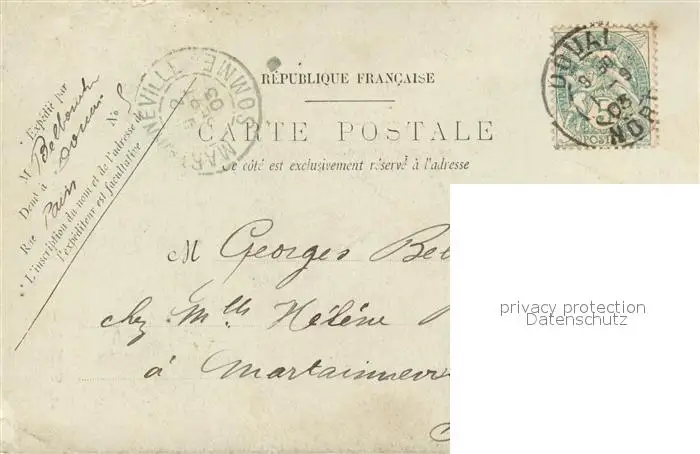 RÉPUBLIQUE FRANÇAISE
CARTE POSTALE
Ce côté est exclusivement réservé à l'adresse
Expédié par
M
Demt à Douai
Rue Paris No 5
L'inscription du nom et de l'adresse de
l'expéditeur est facultative
MARTAINNEVILLE SOMME
03
DOUAI
NORD
03
POSTES
M Georges
chez Mlle Hélène
à
privacy protection
Datenschutz